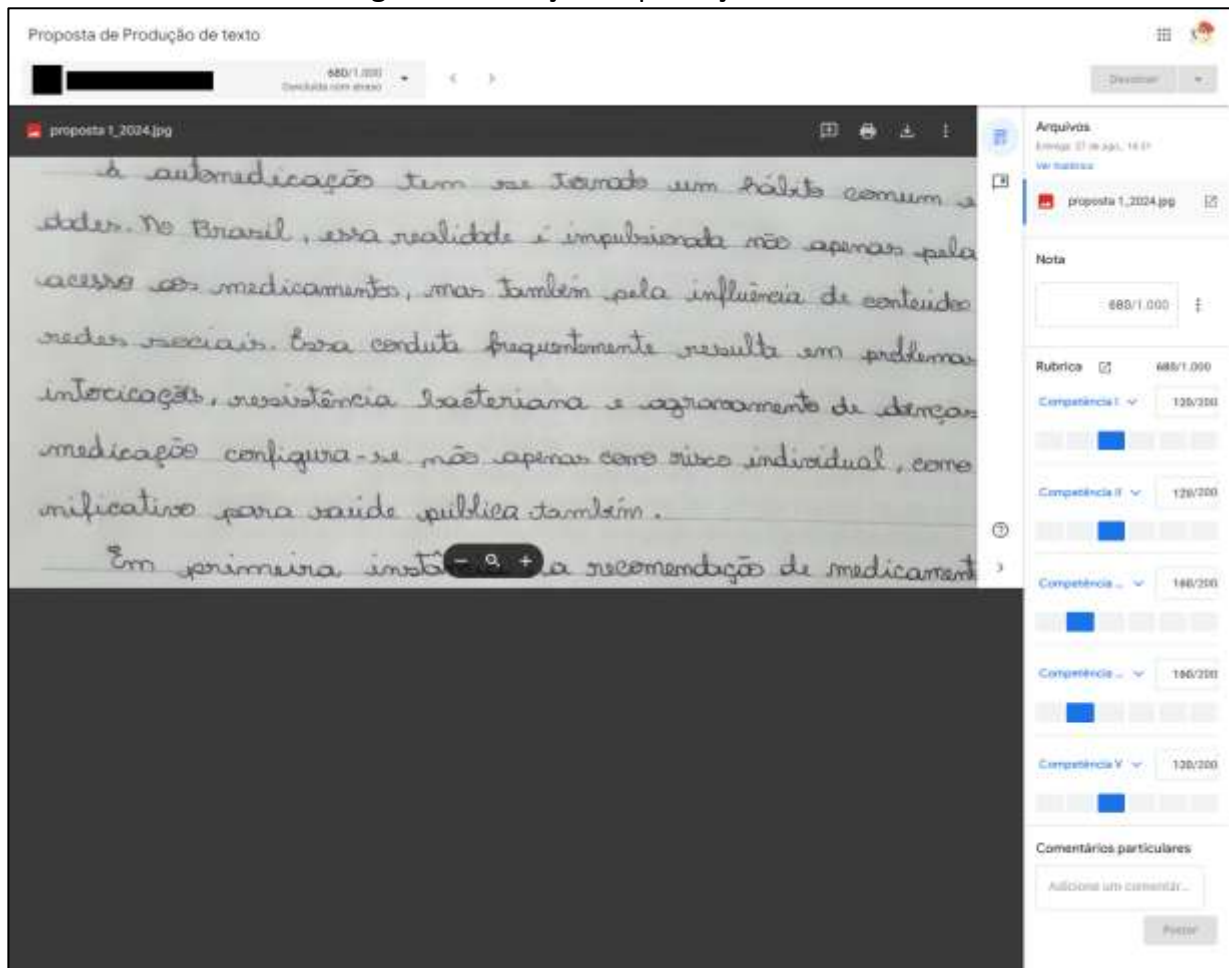 Proposta de Produção de texto
680/1.000
Concluída com atraso
Devolver
proposta 1_2024.jpg
A automedicação tem se tornado um hábito comum e
dades. No Brasil, essa realidade é impulsionada não apenas pela
acesso aos medicamentos, mas também pela influência de conteúdos
redes sociais. Essa conduta frequentemente resulta em problemas
intocicação, resistência bacteriana e agravamento de doenças
medicação configura-se não apenas como risco individual, como
nificativo para saúde pública também.
Em primeira a recomendação de medicament
Arquivos
Entregue: 07 de ago.,
Ver histórico
proposta 1_2024.jpg
Nota
680/1.000
Rubrica 680/1.000
Competência I 120/200
Competência II 120/200
Competência ... 160/200
Competência ... 160/200
Competência V 120/200
Comentários particulares
Adicione um comentár...
Postar